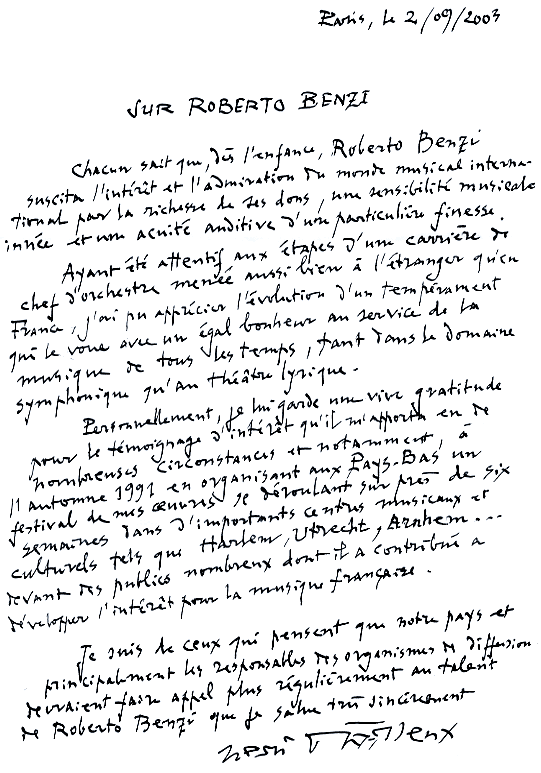 Paris, le 2/09/2003
SUR ROBERTO BENZI
Chacun sait que, dès l'enfance, Roberto Benzi
suscita l'intérêt et l'admiration du monde musical interna-
tional par la richesse de ses dons, une sensibilité musicale
innée et une acuité auditive d'une particulière finesse.
Ayant été attentif aux étapes d'une carrière de
chef d'orchestre menée aussi bien à l'étranger qu'en
France, j'ai pu apprécier l'évolution d'un tempérament
qui le voue avec un égal bonheur au service de la
musique de tous les temps, tant dans le domaine
symphonique qu'au théâtre lyrique.
Personnellement, je lui garde une vive gratitude
pour le témoignage d'intérêt qu'il m'apporta en de
nombreuses circonstances et notamment, à
l'automne 1991 en organisant aux Pays-Bas un
festival de mes œuvres se déroulant sur près de six
semaines dans d'importants centres musicaux et
culturels tels que Harlem, Utrecht, Arnhem...
devant des publics nombreux dont il a contribué a
développer l'intérêt pour la musique française.
Je suis de ceux qui pensent que notre pays et
principalement les responsables des organismes de diffusion
devraient faire appel plus régulièrement au talent
de Roberto Benzi que je salue très sincèrement
Henri Dutilleux